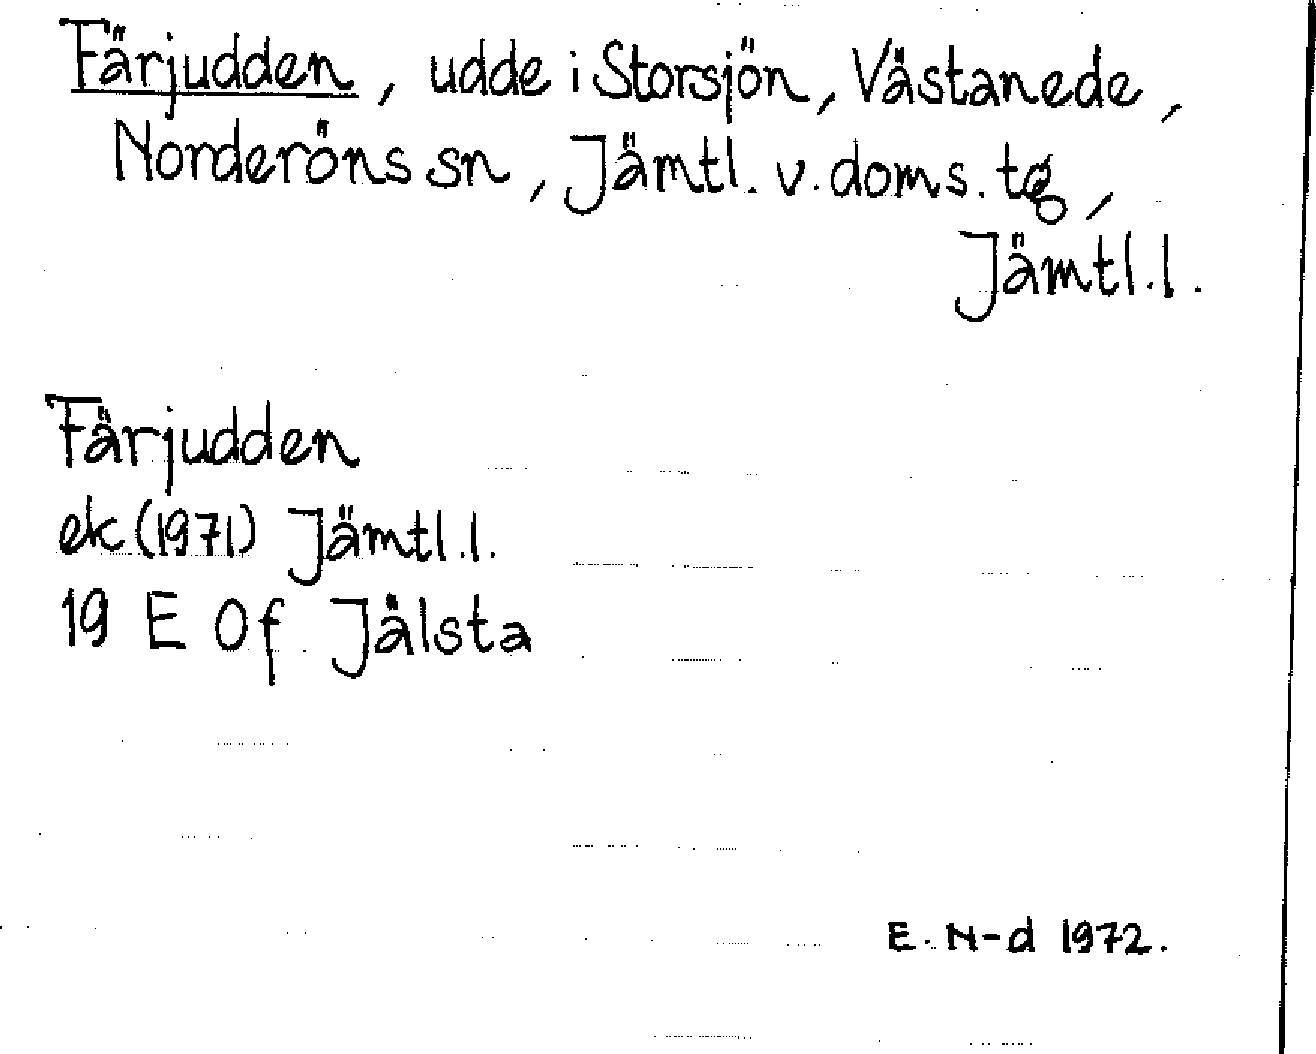 Färjudden, udde i Storsjön, Västanede,
Norderöns sn, Jämtl. v. doms. tg,
Jämtl. l.
Färjudden
ek (1971) Jämtl. l.
19 E 0f Jålsta
E. N-d 1972.